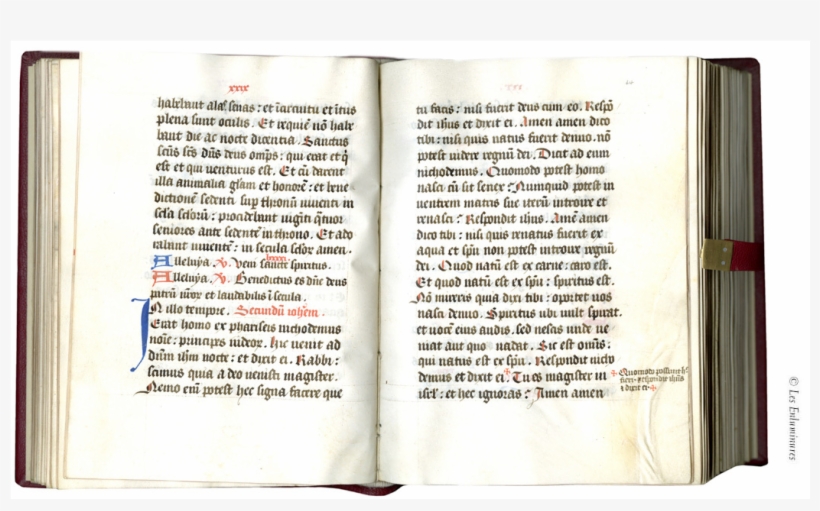 xxix
habebant alas senas : et ī circuitu et ītus
plena sunt oculis . Et requiē nō habe
bant die ac nocte dicentia . Sanctus
scūs scs dūs deus omps : qui erat et q̇
est et qui venturus est . Et cū darent
illa animalia glam et honorē : et bene
dictionē sedenti sup thronū viventi in
scla sclorū : procidebant viginti q̇tuor
seniores ante sedentē in throno . Et ado
rabant viventē : in secula sclor amen .
Alleluya . V . Veni sancte spiritus .
Alleluya . V . Benedictus es dūe deus
patrū nror et laudabilis ī secula .
IN illo tempore . Secundū iohem .
Erat homo ex phariseis nichodemus
noīe : princeps iudeor . hic venit ad
dīum ihm nocte : et dixit ei . Rabbi :
scimus quia a deo venisti magister .
Nemo enī potest hec signa facere que
xxx
tu facis : nisi fuerit deus cum eo . Respō
dit ihus et dixit ei . Amen amen dico
tibi : nisi quis natus fuerit denuo . nō
potest videre regnū dei . Dicit ad eum
nichodemus . Quomodo potest homo
nasci cū sit senex ? Numquid potest in
ventrem matris sue iterū introire et
renasci ? Respondit ihus . Amē amen
dico tibi : nisi quis renatus fuerit ex
aqua et spū non potest introire regnū
dei . Quod natū est ex carne : caro est .
Et quod natū est ex spū : spiritus est .
Nō mireris quia dixi tibi : oportet vos
nasci denuo . Spiritus ubi vult spirat .
et vocē eius audis . sed nescis unde ve
niat aut quo vadat . Sic est omīs :
qui natus est ex spū . Respondit nicho
demus et dixit ei . Tu es magister in
isrl : et hec ignoras ? Amen amen
Quomodo possunt h
fieri . respondit ihūs
et dixit ei
© Les Enluminures